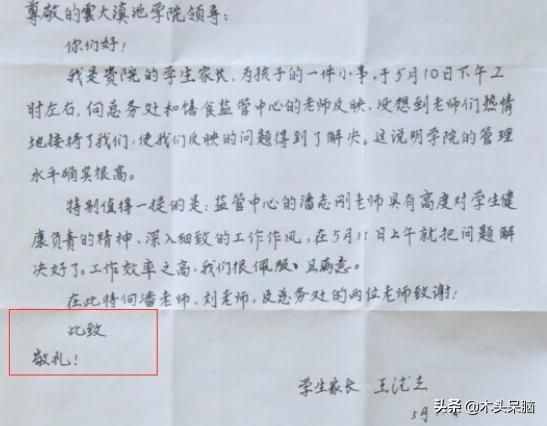 尊敬的雲大滇池学院领导:
你们好!
我是贵院的学生家长,为孩子的一件小事,于5月10日下午2
时左右,向总务处和膳食监管中心的老师反映,没想到老师们热情
地接待了我们,使我们反映的问题得到了解决。这说明学院的管理
水平确实很高。
特别值得一提的是:监管中心的潘志刚老师具有高度对学生健
康负责的精神、深入细致的工作作风,在5月11日上午就把问题解
决好了,工作效率之高,我们很佩服、且满意。
在此特向潘老师、刘老师,及总务处的两位老师致谢!
此致
敬礼!
学生家长 王
5月
头条 @木头呆脑